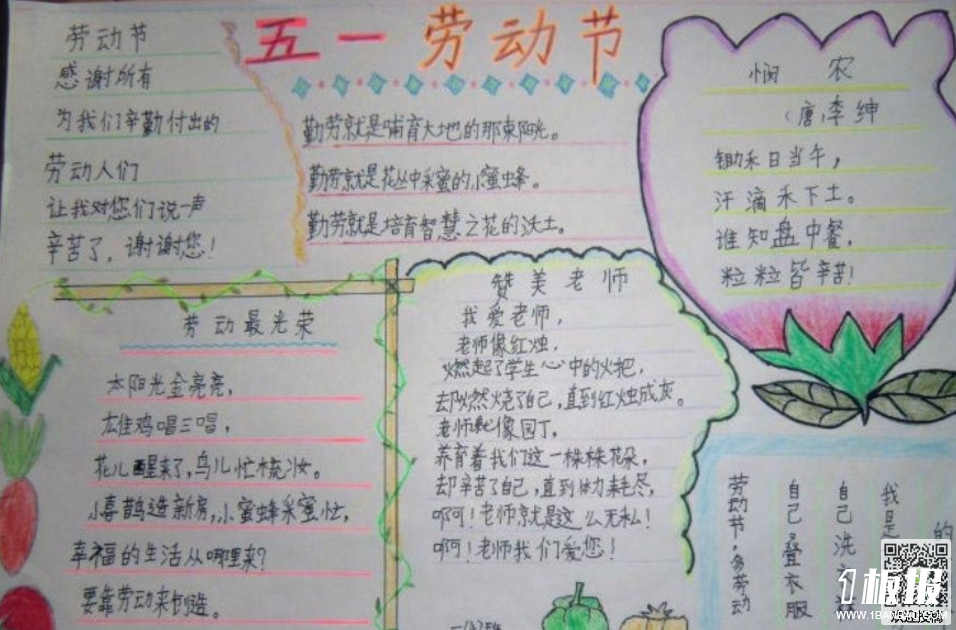 五一劳动节
劳动节
感谢所有
为我们辛勤付出的
劳动人们
让我对您们说一声
辛苦了，谢谢您！
勤劳就是哺育大地的那束阳光。
勤劳就是花丛中采蜜的小蜜蜂。
勤劳就是培育智慧之花的沃土。
悯农
（唐）李绅
锄禾日当午，
汗滴禾下土。
谁知盘中餐，
粒粒皆辛苦！
劳动最光荣
太阳光金亮亮，
雄鸡唱三唱，
花儿醒来了，鸟儿忙梳妆。
小喜鹊造新房，小蜜蜂采蜜忙，
幸福的生活从哪里来？
要靠劳动来创造。
赞美老师
我爱老师，
老师像红烛，
燃起了学生心中的火把，
却燃烧了自己，直到红烛成灰。
老师就像园丁，
养育着我们这一株株花朵，
却辛苦了自己，直到体力耗尽，
啊！老师就是这么无私！
啊！老师我们爱您！
的
我是
自己洗衣
自己叠衣服
劳动节，多劳动
1板报
WWW.1BANBAO.COM